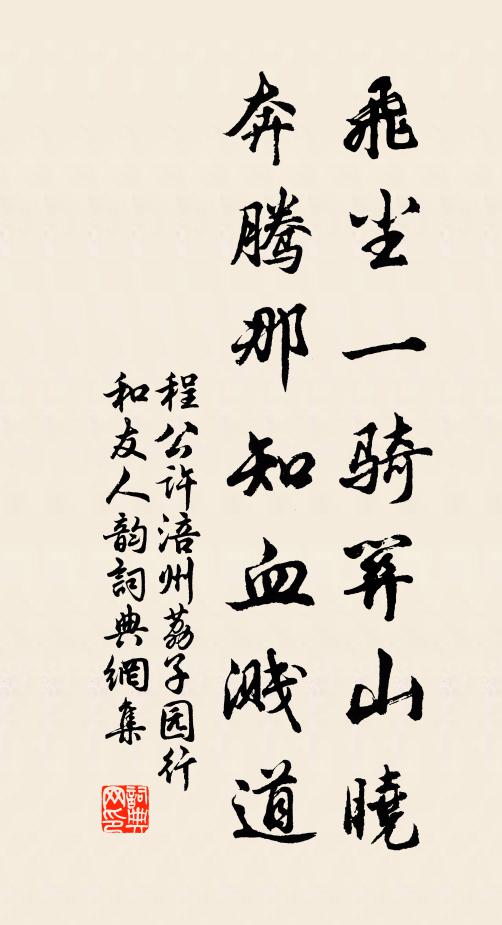 飛尘一骑関山曉
奔腾那知血溅道
程公许涪州荔子园行
和友人韵詞典網集
詞典网印